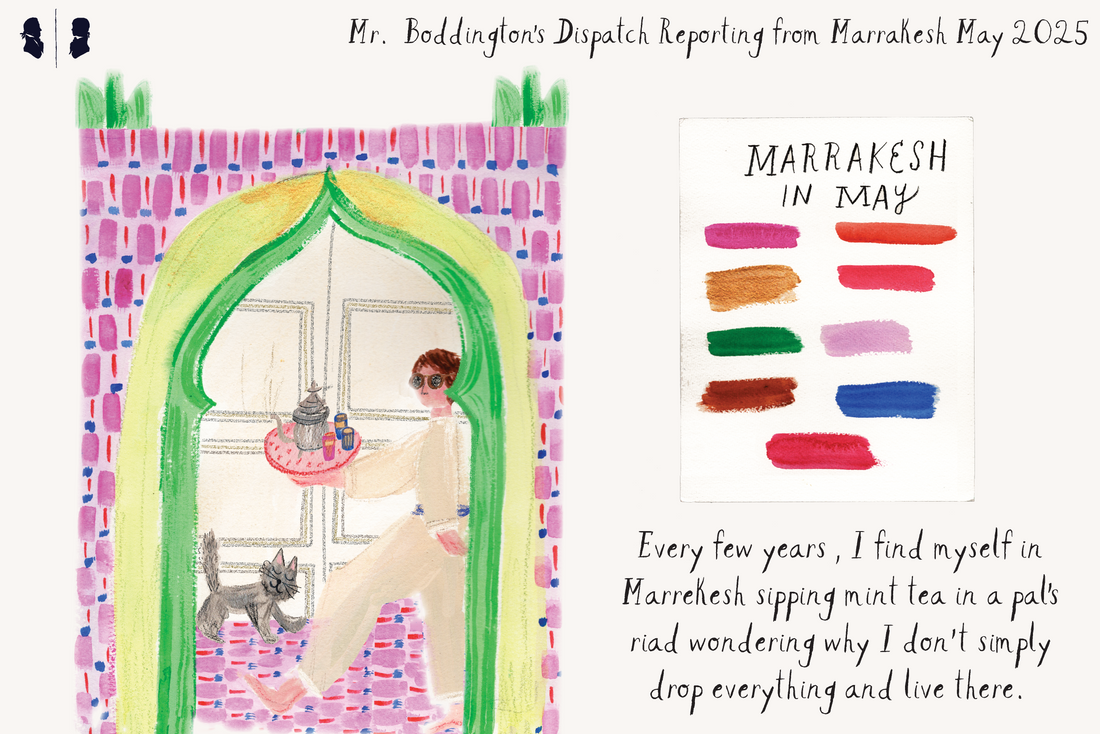 Mr. Boddington's Dispatch Reporting from Marrakesh May 2025
MARRAKESH
IN MAY
Every few years, I find myself in
Marrekesh sipping mint tea in a pal's
riad wondering why I don't simply
drop everything and live there.